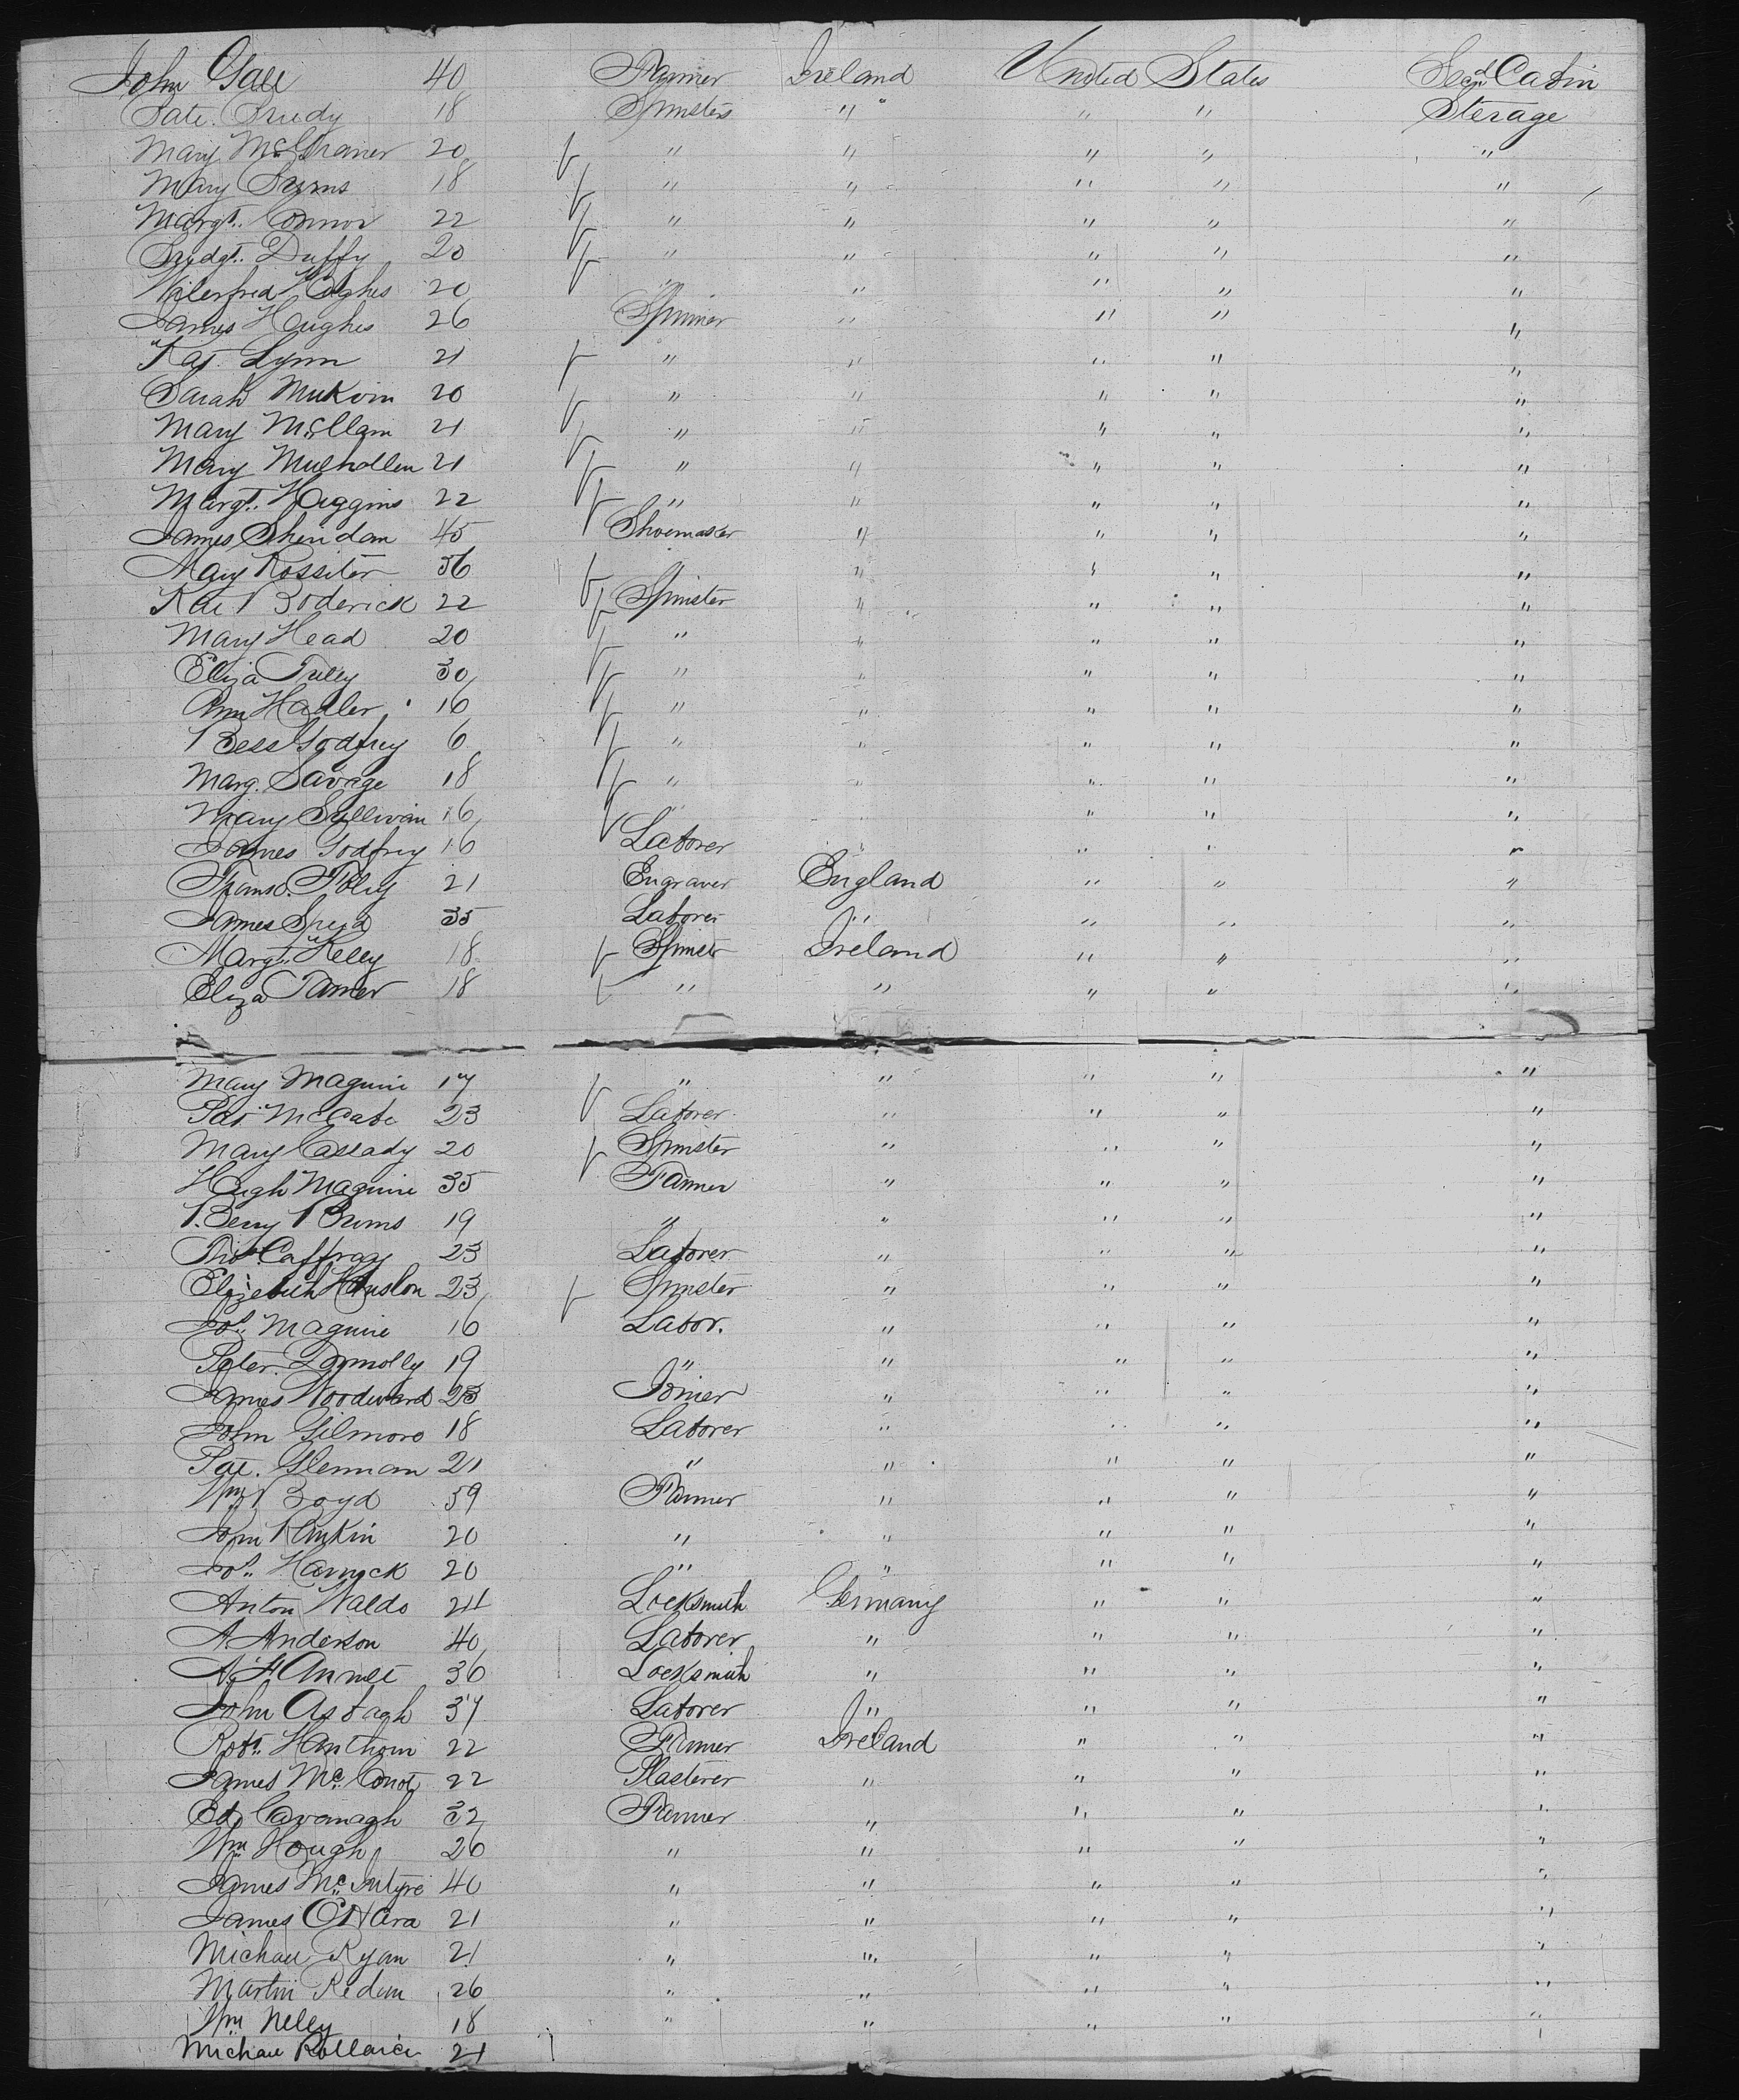 John Gall 40 Farmer Ireland United States Secd Cabin
Pate. Prudy 18 Spinsters " " " Sterage
Mary McGraner 20 " " " " "
Mary Burns 18 " " " " "
Margt. Connor 22 " " " " "
Bridgt. Duffy 20 " " " " "
Hughes 20 " " " " "
James Hughes 26 Spinner " " " "
Kat. Lynn 21 " " " " "
Sarah 20 " " " " "
Mary 21 " " " " "
Mary Mulhollen 21 " " " " "
Margt. Higgins 22 " " " " "
James Sheridan 45 Shoemaker " " " "
Mary Rossiter 56 " " " "
Kat Broderick 22 Spinster " " " "
Mary Head 20 " " " " "
Eliza Tully 30 " " " " "
Ann Hadler 16 " " " " "
Bess Godfrey 6 " " " " "
Marg. Savage 18 " " " " "
Mary Sullivan 16 " " " " "
James Godfrey 16 Laborer " " "
Foley 21 Engraver England " " "
James Speed 35 Laborer " " " "
Margt. Kelly 18 Spinster Ireland " " "
Eliza Tamer 18 " " " " "
Mary Maguire 17 " " " " "
Pat. McCabe 23 Laborer " " " "
Mary Cassady 20 Spinster " " " "
Hugh Maguire 35 Farmer " " " "
Berry Burns 19 " " " " "
Thos. Caffray 23 Laborer " " " "
Elizebeth Houslon 23 Spinster " " " "
Jos. Maguire 16 Labor. " " " "
Peter Donnolly 19 " " " " "
James Woodward 23 Joiner " " " "
John Gilmore 18 Laborer " " " "
Pat. Glennan 21 " " " " "
Wm Boyd 59 Farmer " " " "
John Rankin 20 " " " " "
Jos. 20 " " " " "
Anton Waldo 24 Locksmith Germany " " "
A. Anderson 40 Laborer " " " "
A. H. 36 Locksmith " " " "
John 37 Laborer " " " "
Robt. Hanthorn 22 Farmer Ireland " " "
James Mc 22 Plasterer " " " "
Ed. Cavanagh 32 Farmer " " " "
Wm Hough 26 " " " " "
James McIntyre 40 " " " " "
James O'Hara 21 " " " " "
Michael Ryan 21 " " " " "
Martin Redun 26 " " " " "
Wm Nelly 18 " " " " "
Michael 21